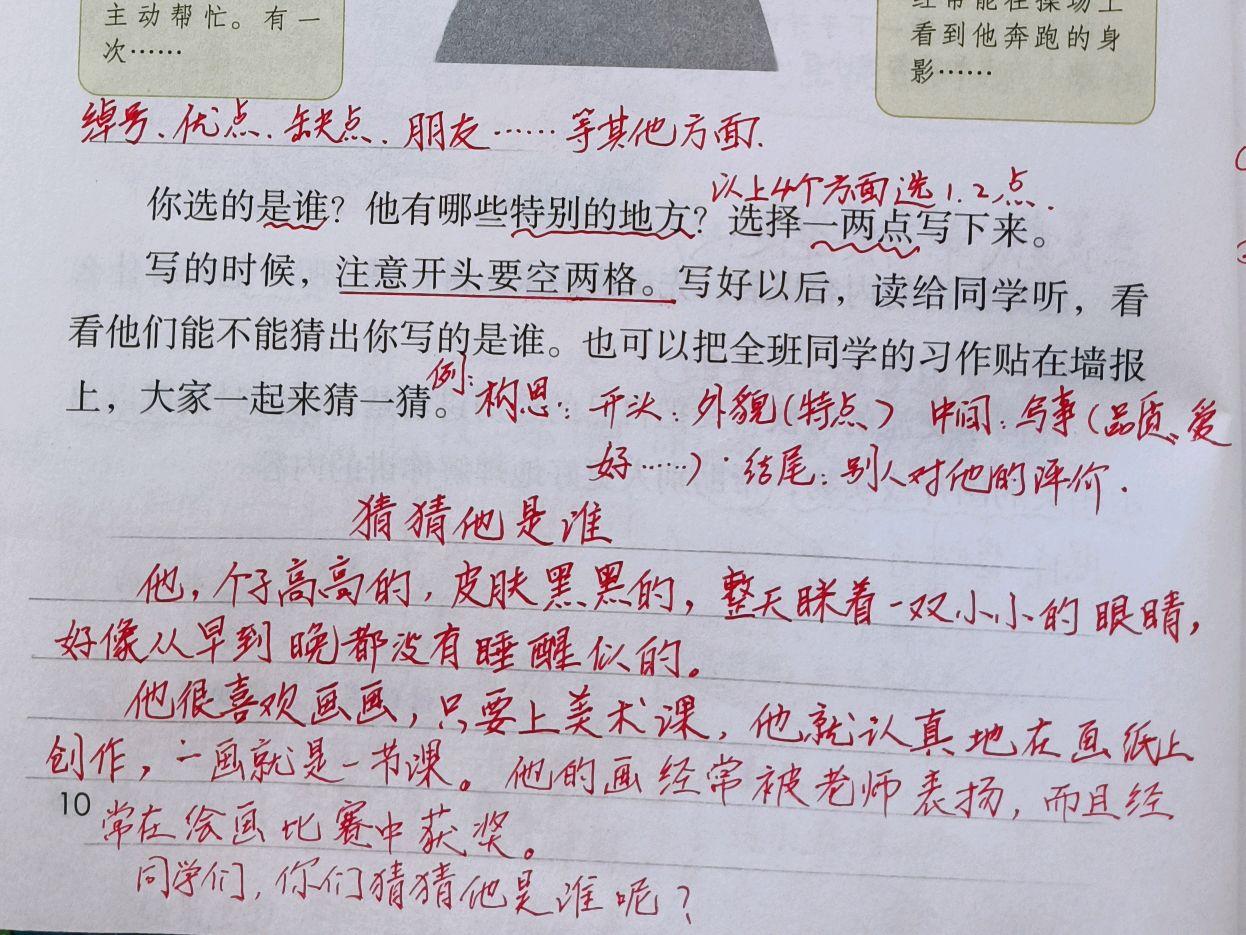 主动帮忙。有一
次……
看到他奔跑的身
影……
绰号、优点、缺点、朋友……等其他方面.
以上4个方面选1.2点.
你选的是谁？他有哪些特别的地方？选择一两点写下来。
写的时候，注意开头要空两格。写好以后，读给同学听，看
看他们能不能猜出你写的是谁。也可以把全班同学的习作贴在墙报
上，大家一起来猜一猜。
例：构思：开头：外貌（特点） 中间：写事（品质、爱
好……）. 结尾：别人对他的评价.
猜猜他是谁
他，个子高高的，皮肤黑黑的，整天眯着一双小小的眼睛，
好像从早到晚都没有睡醒似的。
他很喜欢画画，只要上美术课，他就认真地在画纸上
创作，一画就是一节课。他的画经常被老师表扬，而且经
10
常在绘画比赛中获奖。
同学们，你们猜猜他是谁呢？